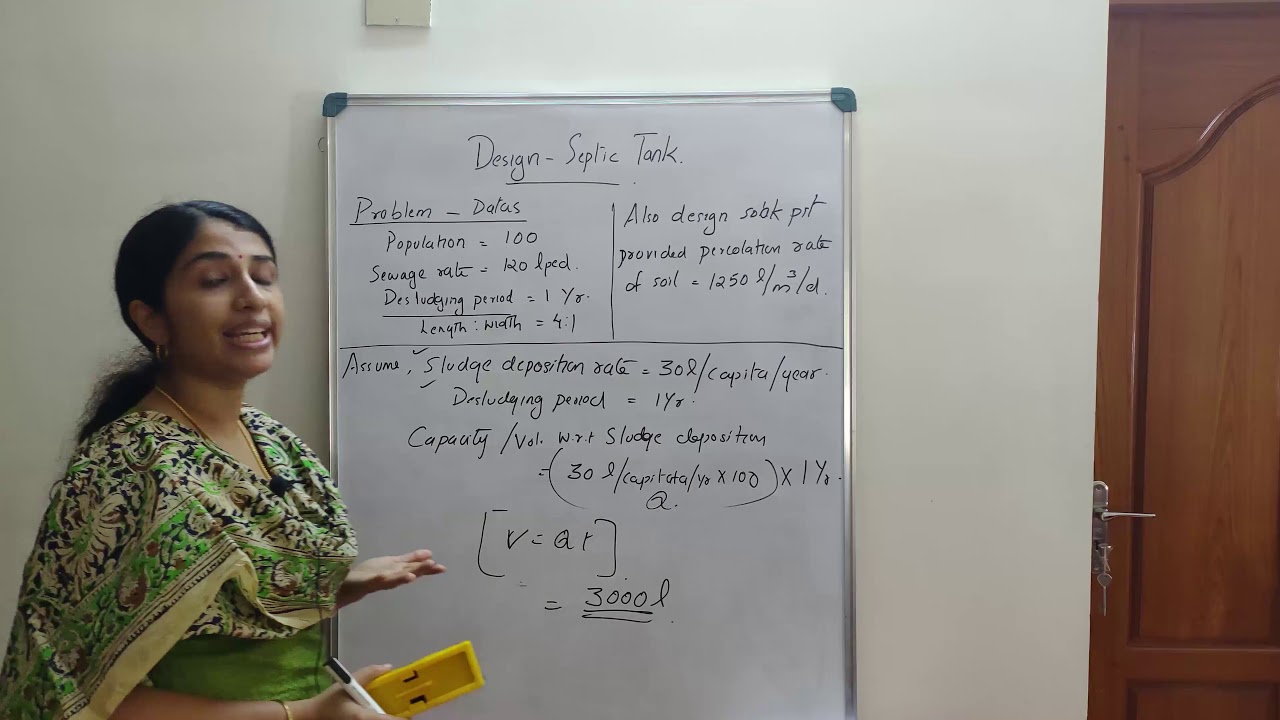 Design - Septic Tank.
Problem - Datas
Population = 100
Sewage rate = 120 lpcd.
Desludging period = 1 Yr.
Length : Width = 4:1
Also design soak pit
provided percolation rate
of soil = 1250 l/m³/d.
Assume, ✓Sludge deposition rate = 30 l/capita/year.
✓ Desludging period = 1 Yr.
Capacity /Vol. w.r.t Sludge deposition
= (30 l/capitata/yr x 100) x 1 Yr.
Q.
[V = Q t]
= 3000 l.